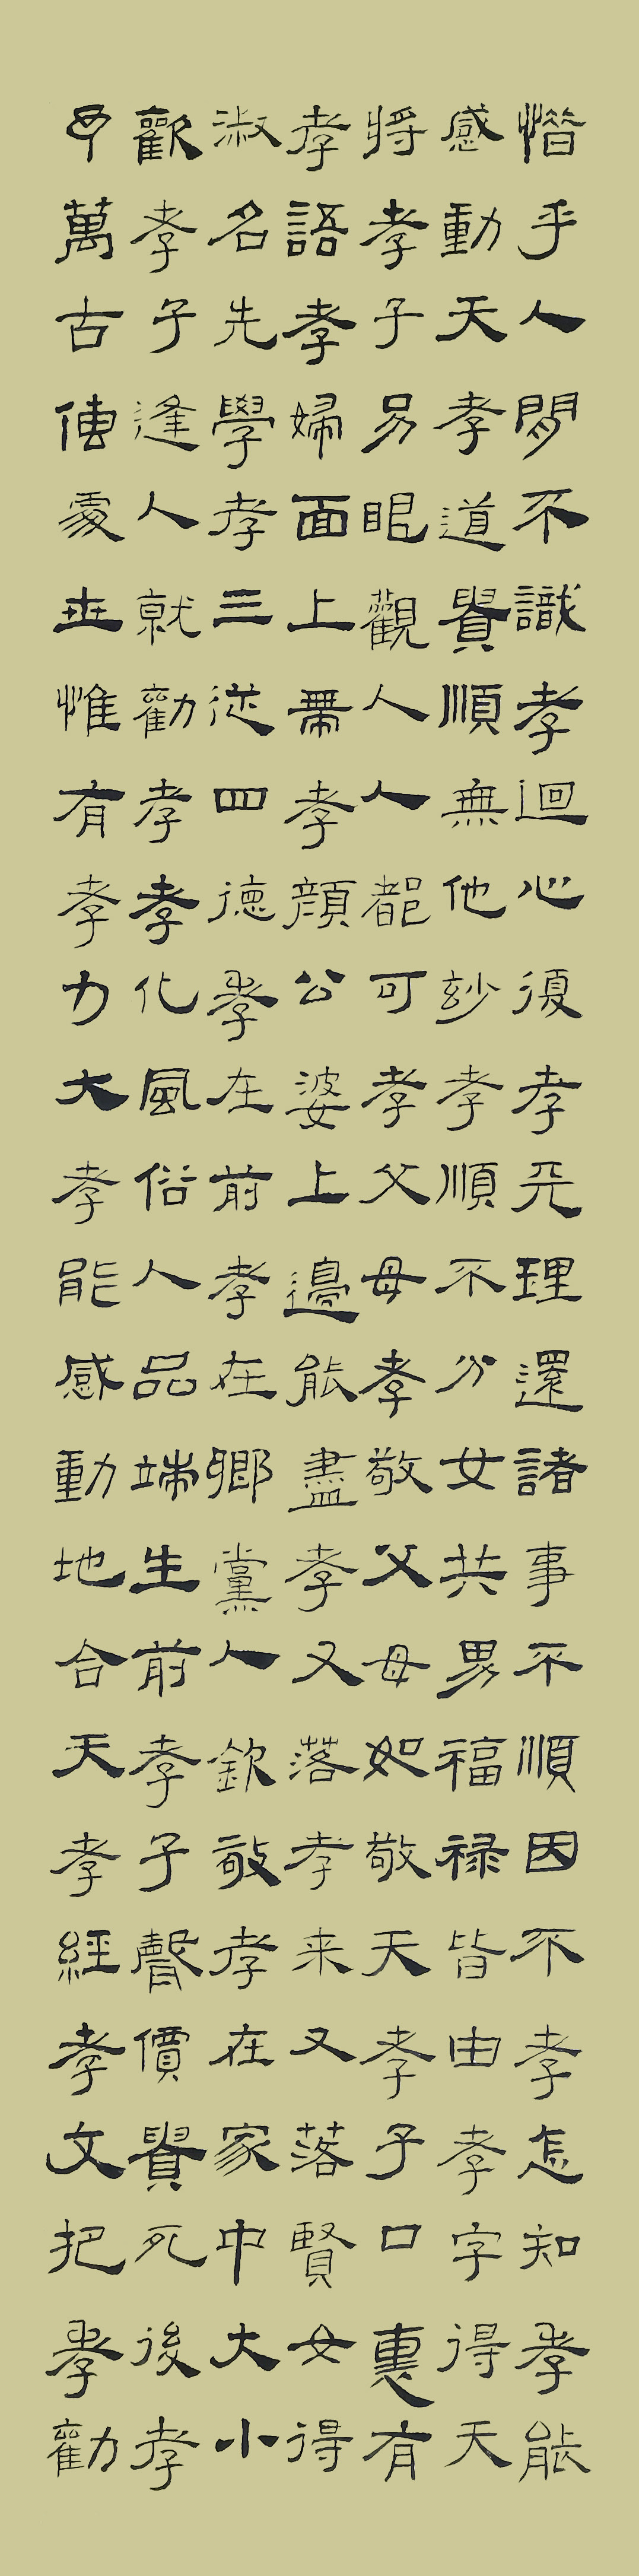 惜乎人間不識孝迴心復孝天理還諸事不順因不孝怎知孝能
感動天孝道貴順無他妙孝順不分女共男福禄皆由孝字得天
將孝子另眼觀人人都可孝父母孝敬父母如敬天孝子口裏有
孝語孝婦面上帶孝顏公婆上邊能盡孝又落孝来又落賢女得
淑名先學孝三從四德孝在前孝在鄉黨人欽敬孝在家中大小
歡孝子逢人就勸孝孝化風俗人品端生前孝子聲價貴死後孝
子萬古傳處世惟有孝力大孝能感動地合天孝經孝文把孝勸